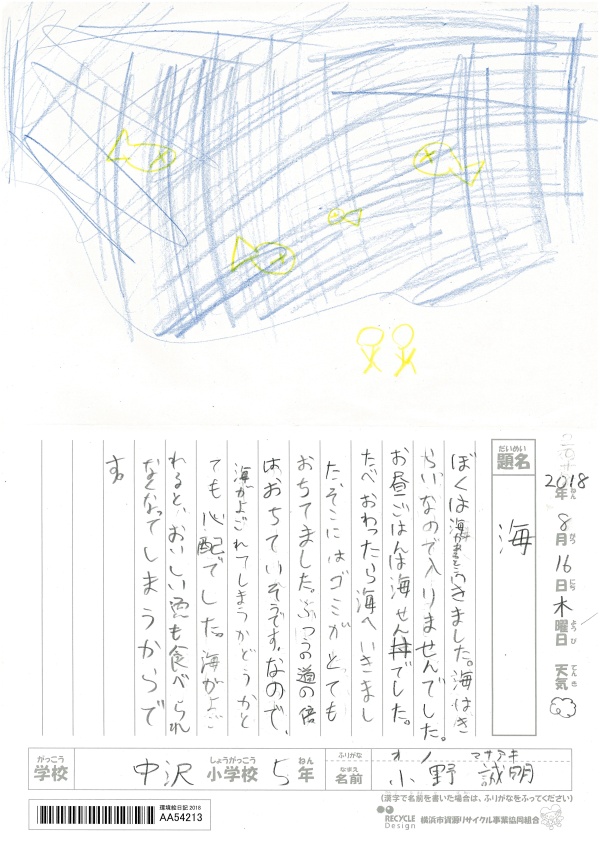 2018年ねん8月がつ16日にち木曜日ようび 天気てんき
だいめい
題名
海
らいなので入りませんでした。
お昼ごはんは海せん丼でした。
たべおわったら海へいきまし
た、そこにはゴミがとても
おちてました。ふつうの道の倍
はおちていそうです。なので、
海がよごれてしまうかどうかと
ても心配でした。海がよご
れると、おいしい魚も食べられ
なくなってしまうからで
す。
がっこう
学校
中沢
しょうがっこう
小学校
5
ねん
年
ふりがな
オノ マサアキ
なまえ
名前
小野 誠明
(漢字で名前を書いた場合は、ふりがなをふってください)
環境絵日記 2018
AA54213
RECYCLE Design
横浜市資源リサイクル事業協同組合